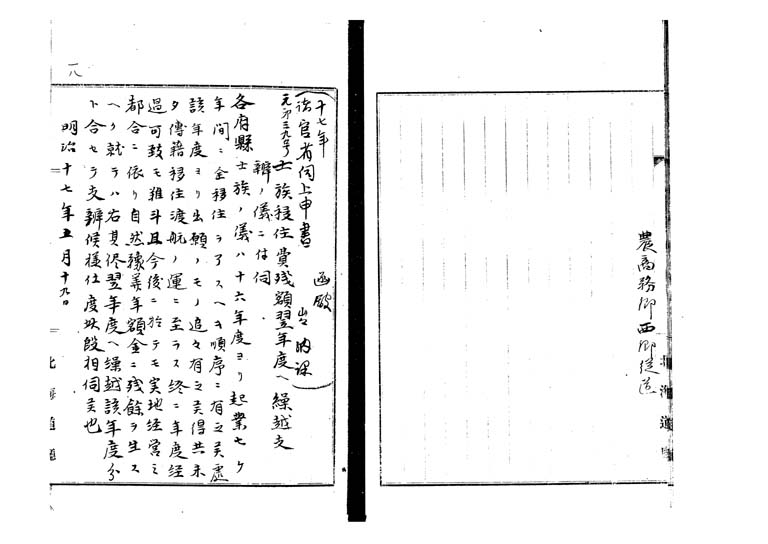 農商務卿西郷従道
十七年
諸官省伺上申書 函館
元第三九号
士族移住費残額翌年度ヘ繰越支
辨ノ儀ニ付伺
各府縣士族ノ儀ハ十六年度ヨリ起業七ケ
年間ニ全移住ヲアスヘキ順序ニ有之候處
該年度ヨリ出願ノモノ追々有之候得共未
タ傳籍移住渡航ノ運ニ至ラス終ニ年度経
過可致モ難斗且今後ニ於テモ実地経営ノ
都合ニ依リ自然豫算年額金ニ残餘ヲ生ス
ヘク就テハ右其侭翌年度ヘ繰越該年度分
ト合セテ支辨候様仕度此段相伺候也
明治十七年五月十九日
一八